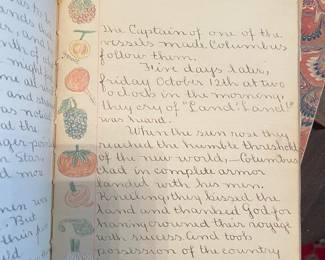 and
might
me all
and
at the
Star,
But
their
The Captain of one of the
vessels made Columbus
follow them.
Five days later,
friday October 12th at two
o'clock in the morning,
they cry of "Land! Land!"
was heard.
When the sun rose they
reached the humble threshold
of the new world, — Columbus
clad in complete armor
landed with his men.
Kneeling, they kissed the
land and thanked God for
having crowned their voyage
with success. And took
possession of the country